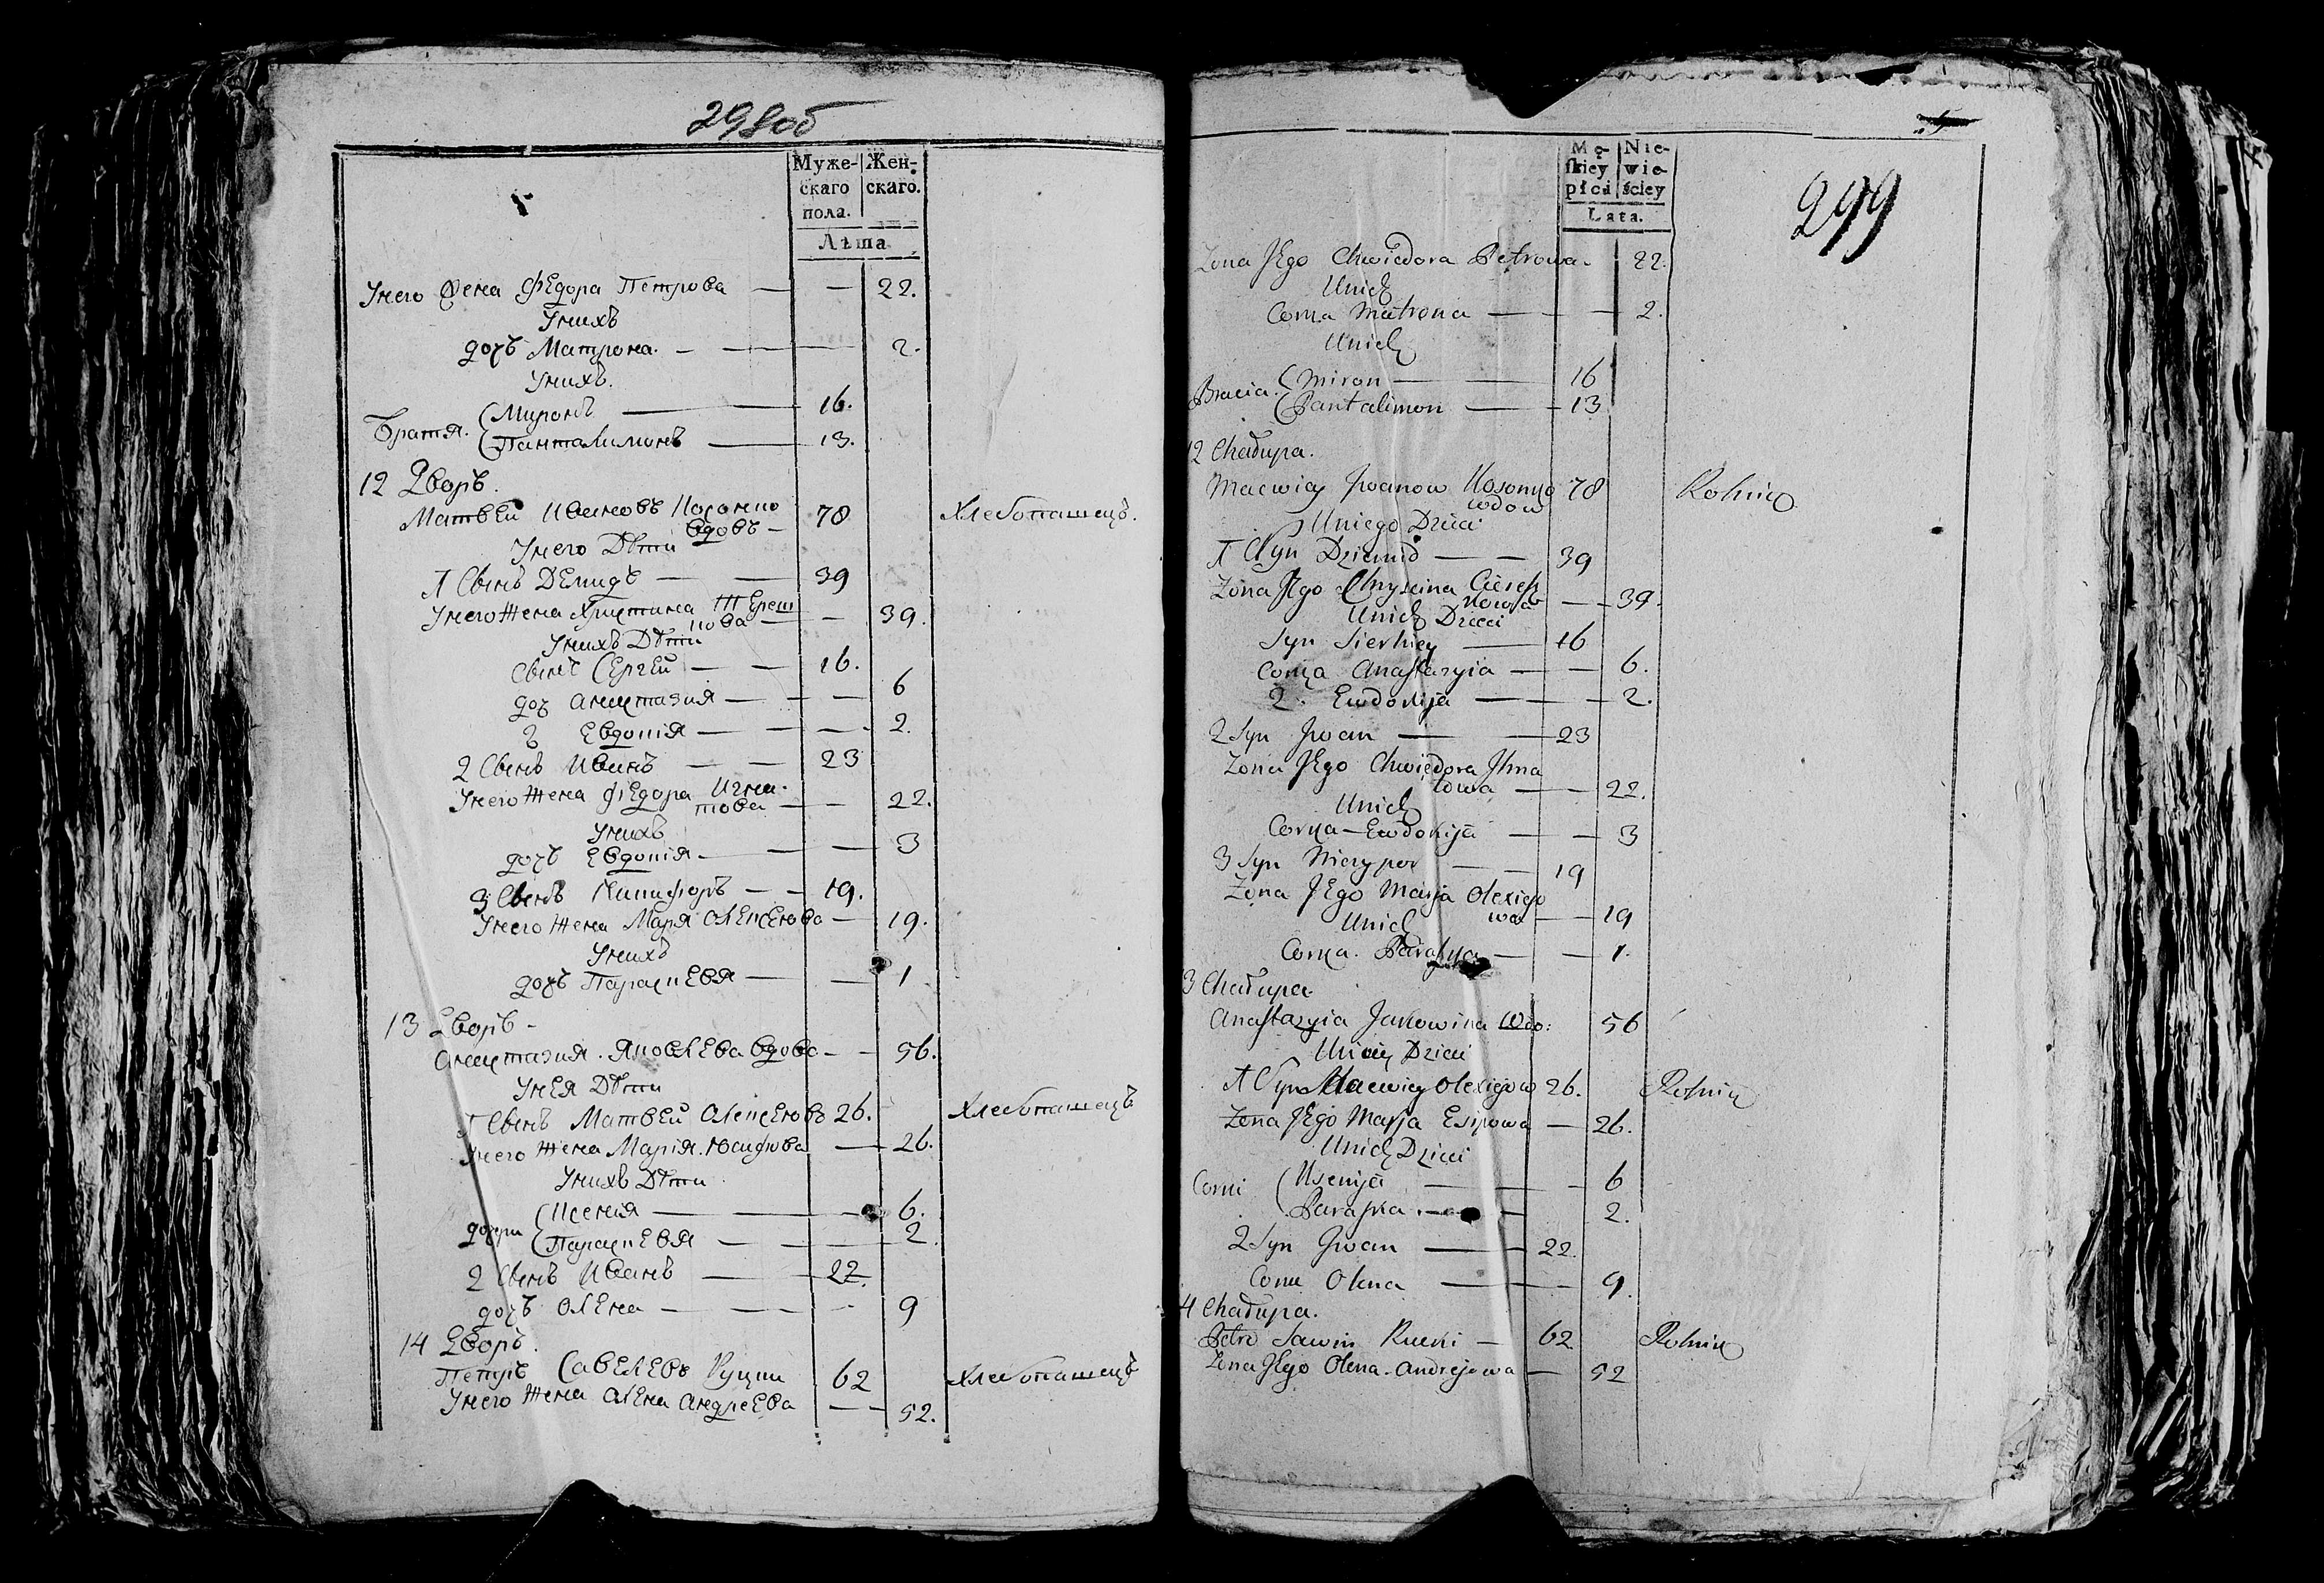 298об
Муже- Жен-
скаго скаго.
пола.
Лѣта
Унего Жена Федора Петрова — — 22.
Унихъ
дочь Матрона. — — 2.
Унихъ.
Миронъ — 16.
Братя.
Панталимонъ — 13.
12 Дворъ.
Матвѣй Ивановъ 78 Хлебопашецъ.
вдовъ —
Унего Дѣти
1 Сынъ Демидъ — — 39
Унего Жена Христина Тереш
кова — — 39.
Унихъ Дѣти
Сынъ Сергей — — 16.
доч Анастазия — — — 6
2 Евдокія — — — 2.
2 Сынъ Иванъ — — 23
Унего Жена Федора Игна-
това — — 22.
Унихъ
дочь Евдокія — — — 3
3 Сынъ Никифоръ — — 19.
Унего Жена Маря Алексеева — 19.
Унихъ
дочь Параскевя — — 1
13 Дворъ —
Анастазия Яковлева вдова — — 56.
Унея Дѣти
1 Сынъ Матвей Алексеевъ 26. Хлебопашецъ
Унего Жена Марія Юсифова — 26.
Унихъ Дѣти
Ксения — — 6.
дочри
Параскевя — — 2
2 Сынъ Иванъ — 22.
дочь Олена — — — 9
14 Дворъ.
Петръ Савелевъ Руцки 62 Хлебопашецъ
Унего Жена Олена Андреева — — 52.
5
Mę- Nie-
skiey wie-
płci ściey
Lata.
299
Zona Jego Chwiedora Petrowa. 22.
Unich
Corka Matrona — — — 2.
Unich
Miron — — 16
Bracia.
Pantalimon — — 13
12 Chałupa.
Maciey Jwanow 78 Rolnik
wdow
Uniego Dzieci
1 Syn Dziemid — — 39
Zona Jego Chryscina Ciesz
kowa — — 39.
Unich Dzieci
Syn Sierhiey — 16
Corka Anastazyia — — 6.
2. Ewdokija — — — 2.
2 Syn Jwan — — 23
Zona Jego Chwiedora Jhna
towa — — 22.
Unich
Corka — Ewdokija — — 3
3 Syn Niczypor — — 19
Zona Jego Marja Olexiejo
wa — — 19
Unich
Corka. Paraska — — 1.
3 Chałupa.
Anastazyia Jakowina Wdo: 56
Uniey Dzieci
1 Syn Maciey Olexiejow 26. Rolnik
Zona Jego Marja Esipowa — 26.
Unich Dzieci
Ksenija — — 6
Corki
Paraska. — — 2.
2 Syn Jwan — 22.
Corka Olena — — 9.
4 Chałupa.
Petro Sawin Rucki — 62 Rolnik
Zona Jego Olena Andrejewa — 52